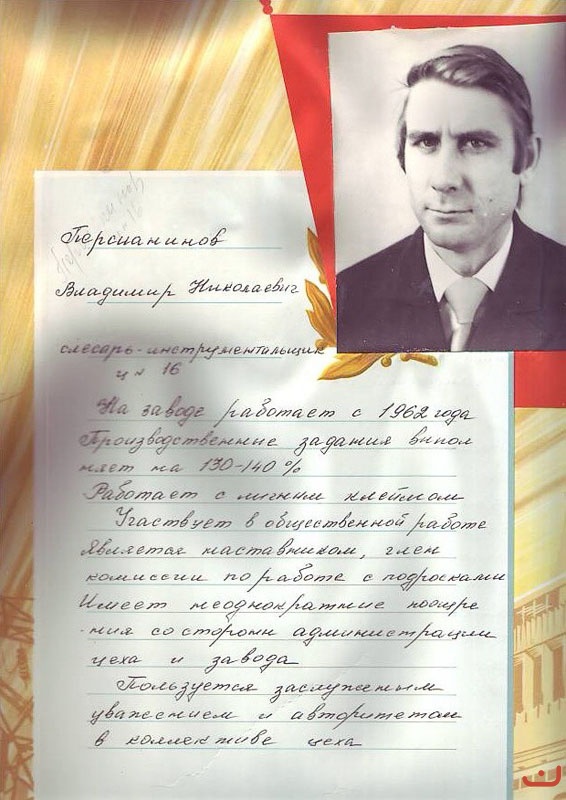 Персианинов
Владимир Николаевич
слесарь-инструментальщик
ц N 16
На заводе работает с 1962 года
Производственные задания выпол
няет на 130-140%
Работает с личным клеймом
Участвует в общественной работе
Является наставником, член
комиссии по работе с подросками
Имеет неоднократние поощре
-ния со сторони администрации
цеха и завода
Пользуется заслуженым
уважением и авторитетом
в коллективе цеха